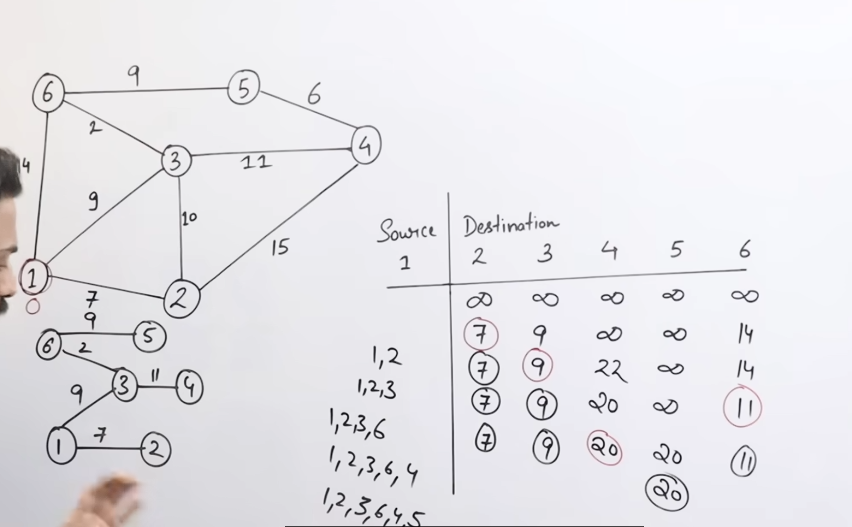 9
6
5
6
2
3
11
4
4
9
10
15
1
7
2
0
9
6
5
2
3
11
4
9
1
7
2
Source Destination
1 2 3 4 5 6
∞ ∞ ∞ ∞ ∞
7 9 ∞ ∞ 14
1,2 7 9 22 ∞ 14
1,2,3 7 9 20 ∞ 11
1,2,3,6 7 9 20 20 11
1,2,3,6,4 20
1,2,3,6,4,5